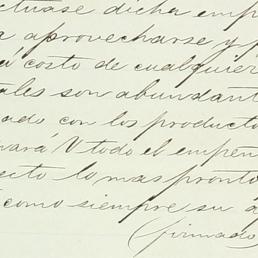 ctuase dicha emp
a aprovecharse y p
á costo de cualquier
ales son abundant
ado con los producto
nará V todo el empeñ
ecto lo mas pronto
como siempre su a
(firmado)